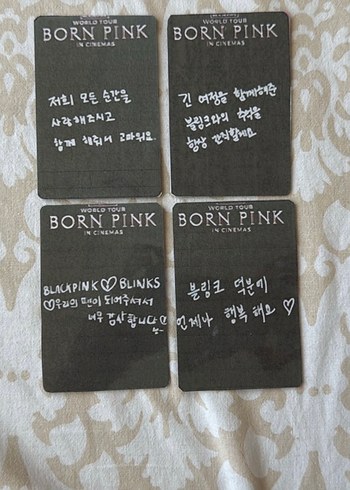 WORLD TOUR
BORN PINK
IN CINEMAS
저희 모든 순간을
사랑해주시고
함께 해줘서 고마워요
WORLD TOUR
BORN PINK
IN CINEMAS
긴 여정을 함께해준
블링크와의 추억을
항상 간직할게요
WORLD TOUR
BORN PINK
IN CINEMAS
BLACKPINK♡BLINKS
♡우리의 편이 되어주셔서
너무 감사합니다♡
WORLD TOUR
BORN PINK
IN CINEMAS
블링크 덕분에
언제나 행복해요♡